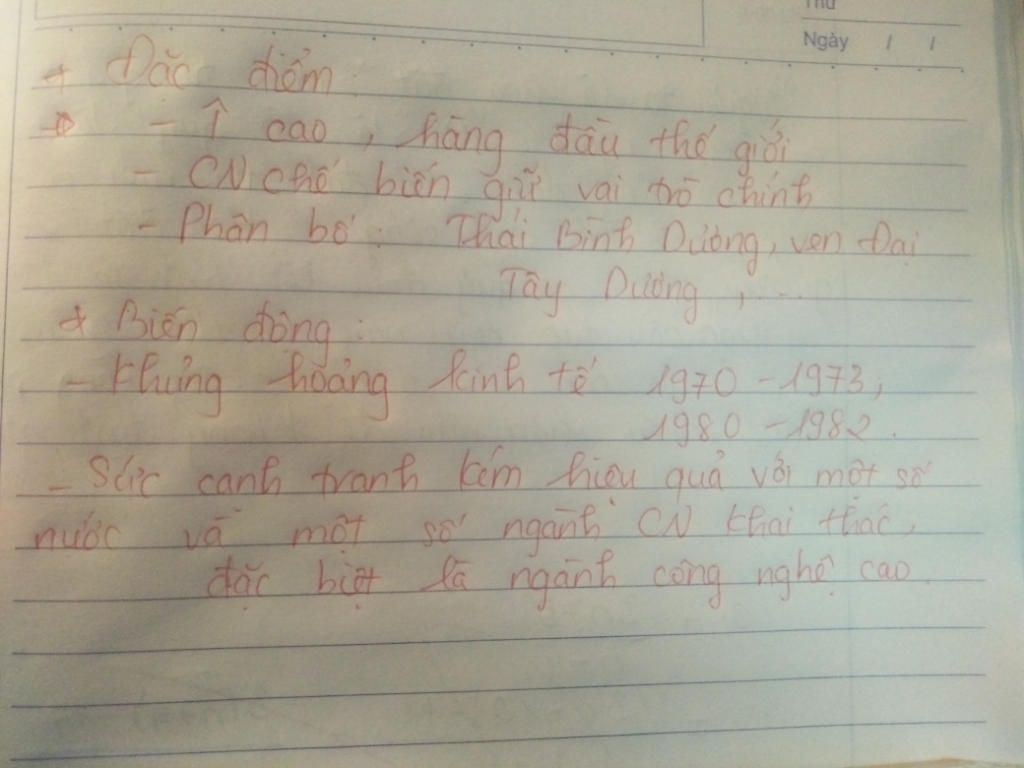 Thứ
Ngày / /
+ Đặc điểm
- ↑ cao, hàng đầu thế giới
- CN chế biến giữ vai trò chính
- Phân bố: Thái Bình Dương, ven Đại
Tây Dương, ...
+ Biến động:
- Khủng hoảng kinh tế 1970 - 1973,
1980 - 1982.
- Sức canh tranh kém hiệu quả với một số
nước và một số ngành CN khai thác,
đặc biệt là ngành công nghệ cao.